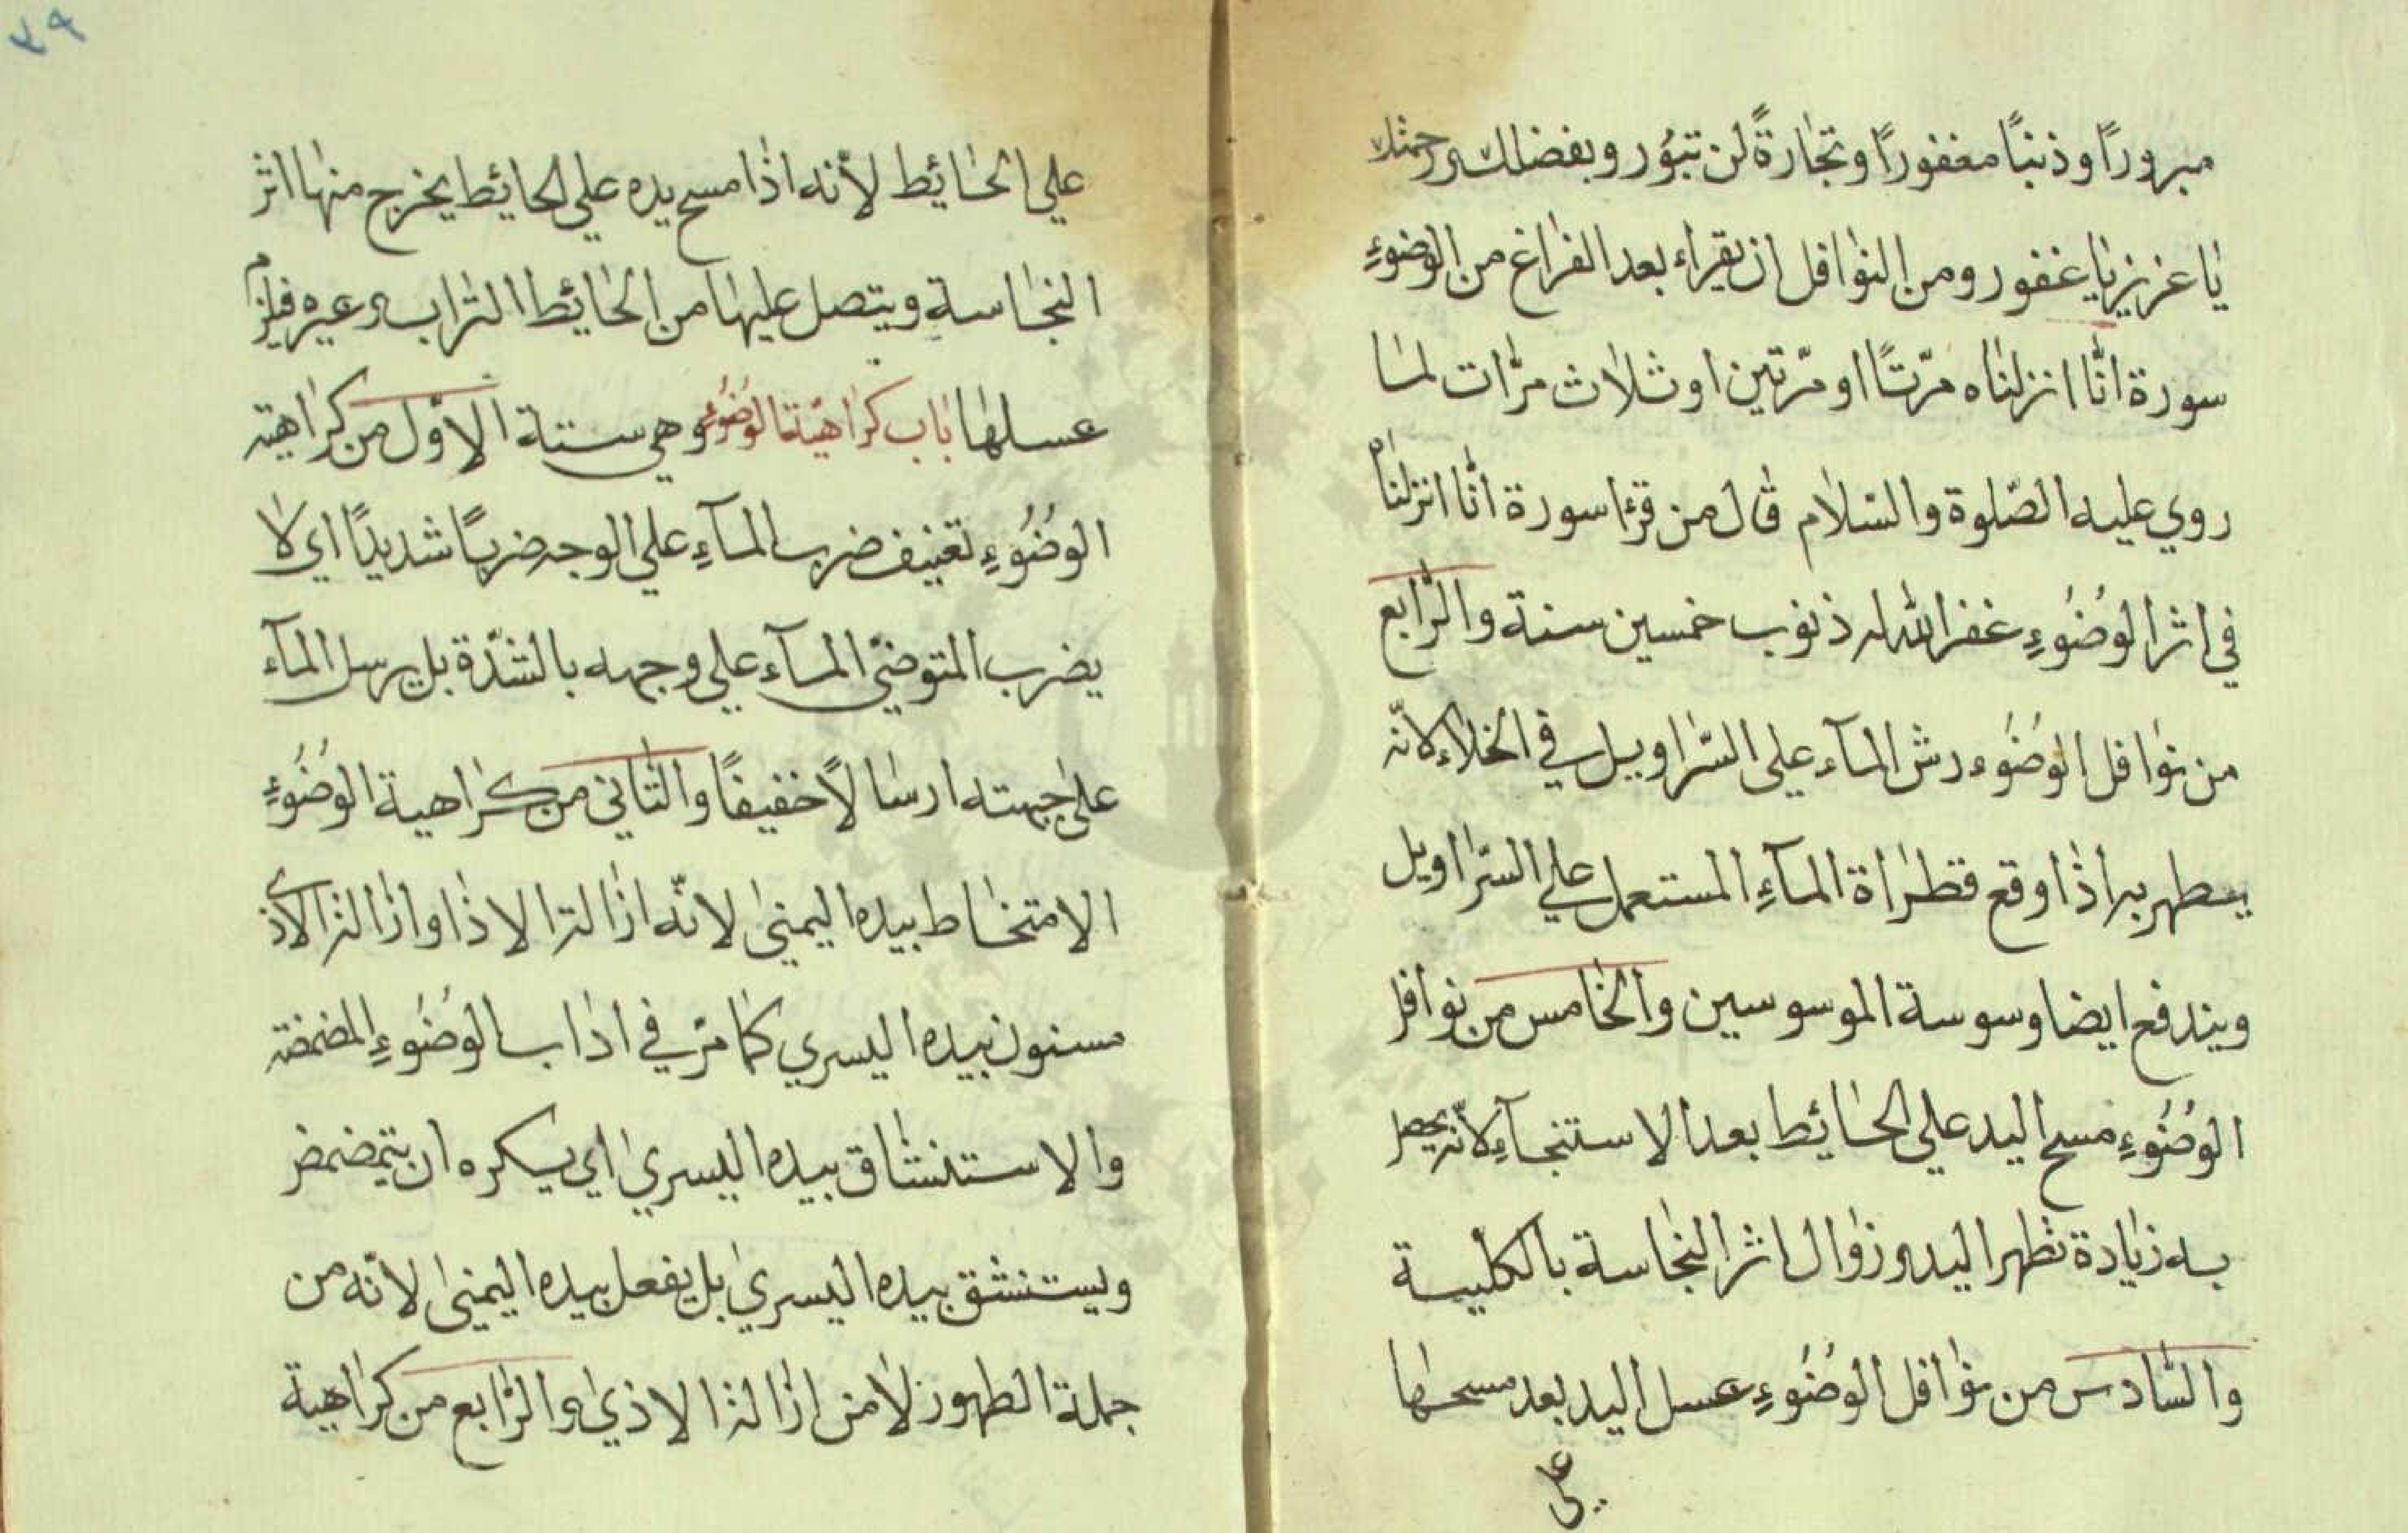 مبرورًا وذنبًا مغفورًا وتجارةً لن تبُور وبفضلك ورحمتك
يا عزيز يا غفور ومن النوافل ان يقراء بعد الفراغ من الوضوءِ
سورة انّا انزلناه مرّتًا او مرّتين او ثلاث مرّات لما
روي عليه الصّلوة والسّلام قال من قرءا سورة انّا انزلناه
في اثر الوُضُوءِ غفر الله له ذنوب خمسين سنة والرّابع
من نوافل الوُضُوء رش المآء على السّراويل في الخلاء لانّه
يطهر به اذا وقع قطراة المآءِ المستعمل علي السّراويل
ويندفع ايضا وسوسة الموسوسين والخامس من نوافل
الوُضُوءِ مسح اليد علي الحائيط بعد الاستنجآءِ لانّه يحصل
به زيادة تطهر اليد وزوال اثر النجاسة بالكليسة
والسّادس من نوافل الوُضُوءِ عسل اليد بعد مسحها
علي
٣٩
علي الحائيط لانّه اذا مسح يده علي الحايئط يخرج منها اثر
النجاسة ويتصل عليها من الحائيط التراب وعيره فيلزم
عسلها باب كراهيّة الوُضُوءِ وهي ستة الاوّل من كراهية
الوُضُوءِ تعنيف ضرب المآءِ علي الوجه ضربًا شديدًا اي لا
يضرب المتوضّي المآء علي وجهه بالشدّة بل يرسل المآء
على جبهته ارسالاً خفيفًا والثاني من كراهية الوُضُوءِ
الامتخاط بيده اليمنى لانّه ازالة الاذا وازالة الاذى
مسنون بيده اليسري كما مرّ في اداب الوُضُوءِ المضمضة
والاستنشاق بيده اليسرى اي يكره ان يتمضمض
ويستنشق بيده اليسري بل يفعل بيده اليمنى لانّه من
جملة الطهور لا من ازالة الاذي والرّابع من كراهية